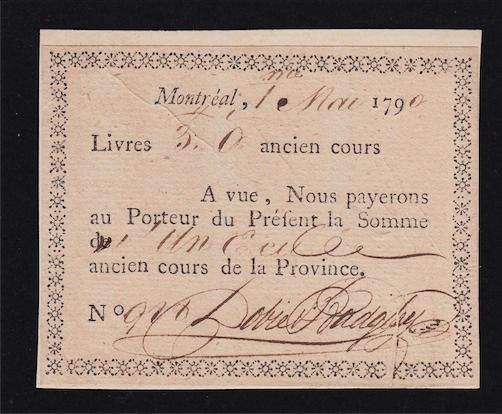 Montréal, 1 Mai 1790
Livres 3. 0 ancien cours
A vue, Nous payerons
au Porteur du Préſent la Somme
de Un Ecu
ancien cours de la Province.
No